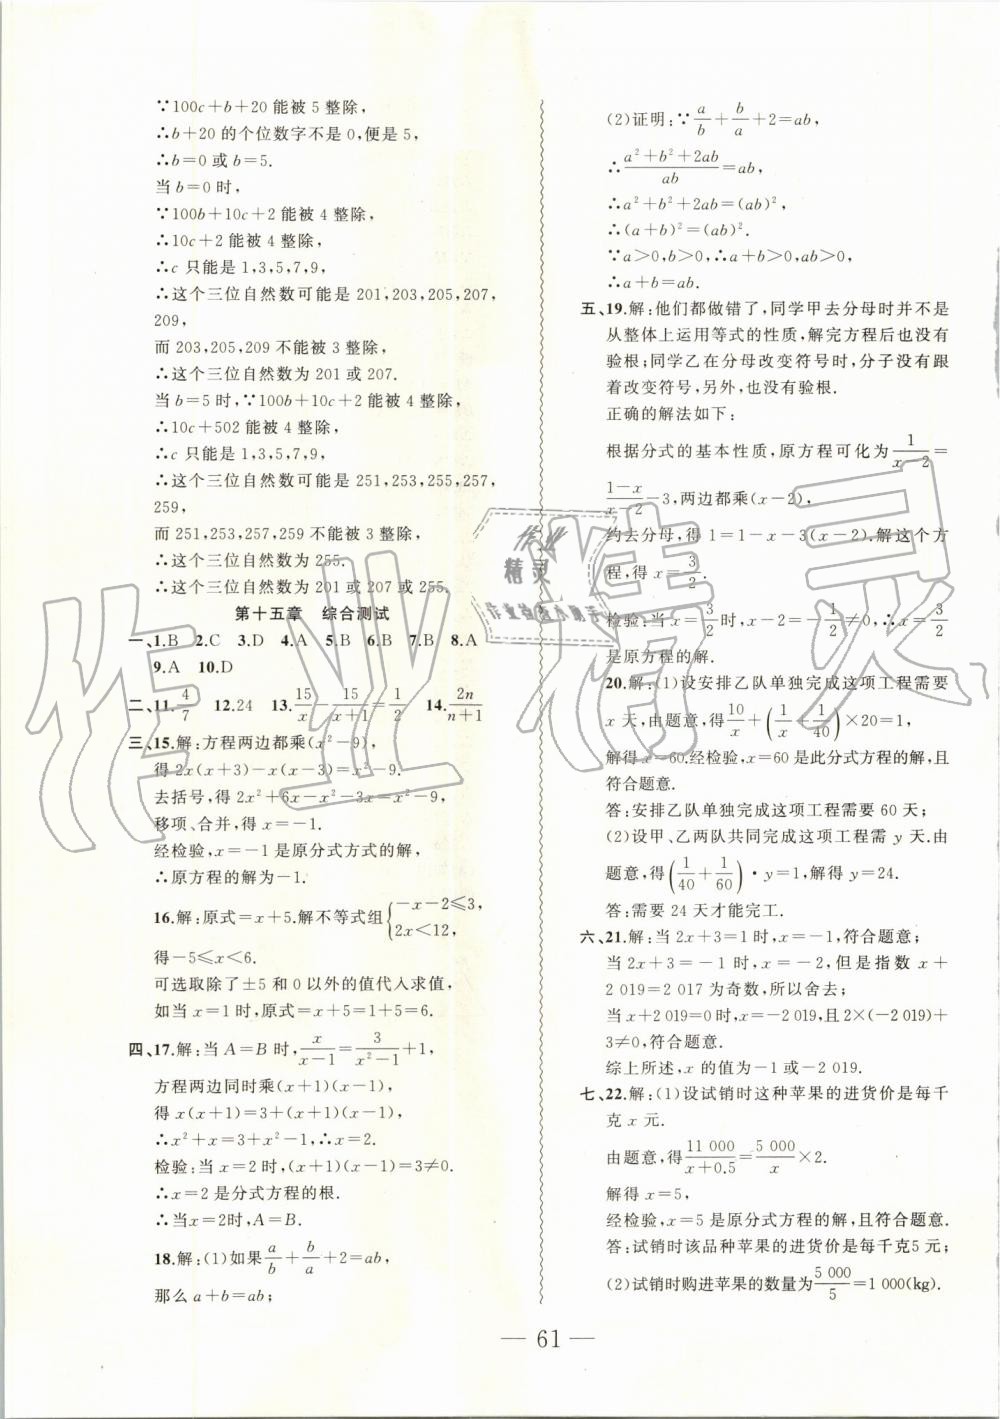 ∵100c+b+20 能被 5 整除，
∴b+20 的个位数字不是 0，便是 5，
∴b=0或 b=5.
当 b=0 时，
∵100b+10c+2 能被 4 整除，
∴10c+2 能被 4 整除，
∴c 只能是 1,3,5,7,9，
∴这个三位自然数可能是 201,203,205,207,
209，
而 203,205,209 不能被 3 整除，
∴这个三位自然数为 201 或 207.
当 b=5 时，∵100b+10c+2 能被 4 整除，
∴10c+502 能被 4 整除，
∴c 只能是 1,3,5,7,9，
∴这个三位自然数可能是 251,253,255,257,
259，
而 251,253,257,259 不能被 3 整除，
∴这个三位自然数为 255.
∴这个三位自然数为 201 或 207 或 255.
第十五章 综合测试
一、1.B 2.C 3.D 4.A 5.B 6.B 7.B 8.A
9.A 10.D
二、11. 4/7 12.24 13. 15/x - 15/(x+1) = 1/2 14. 2n/(n+1)
三、15.解：方程两边都乘(x²-9)，
得 2x(x+3)-x(x-3)=x²-9.
去括号，得 2x²+6x-x²-3x=x²-9，
移项、合并，得 x=-1.
经检验，x=-1 是原分式方式的解，
∴原方程的解为-1.
16.解：原式=x+5.解不等式组{-x-2≤3，
2x<12，
得-5≤x<6.
可选取除了±5 和 0 以外的值代入求值，
如当 x=1 时，原式=x+5=1+5=6.
四、17.解：当 A=B 时，x/(x-1) = 3/(x²-1) +1，
方程两边同时乘(x+1)(x-1)，
得 x(x+1)=3+(x+1)(x-1)，
∴x²+x=3+x²-1，∴x=2.
检验：当 x=2 时，(x+1)(x-1)=3≠0.
∴x=2 是分式方程的根.
∴当x=2时，A=B.
18.解：(1)如果 a/b + b/a +2=ab，
那么 a+b=ab；
(2)证明：∵ a/b + b/a +2=ab，
∴ (a²+b²+2ab)/ab =ab，
∴a²+b²+2ab=(ab)²，
∴(a+b)²=(ab)².
∵a>0,b>0，∴a+b>0,ab>0，
∴a+b=ab.
五、19.解：他们都做错了，同学甲去分母时并不是
从整体上运用等式的性质，解完方程后也没有
验根；同学乙在分母改变符号时，分子没有跟
着改变符号，另外，也没有验根.
正确的解法如下：
根据分式的基本性质，原方程可化为 1/(x-2) =
(1-x)/(x-2) -3，两边都乘(x-2)，
约去分母，得 1=1-x-3(x-2). 解这个方
程，得 x= 3/2.
检验：当 x= 3/2 时，x-2=- 1/2 ≠0，∴x= 3/2
是原方程的解.
20.解：(1)设安排乙队单独完成这项工程需要
x 天，由题意，得 10/x + (1/x + 1/40) ×20=1，
解得 x=60.经检验，x=60 是此分式方程的解，且
符合题意.
答：安排乙队单独完成这项工程需要 60 天；
(2)设甲、乙两队共同完成这项工程需 y 天，由
题意，得 (1/40 + 1/60) · y=1，解得 y=24.
答：需要 24 天才能完工.
六、21.解：当 2x+3=1 时，x=-1，符合题意；
当 2x+3=-1 时，x=-2，但是指数 x+
2 019=2 017 为奇数，所以舍去；
当 x+2 019=0 时，x=-2 019，且 2×(-2 019)+
3≠0，符合题意.
综上所述，x 的值为-1 或-2 019.
七、22.解：(1)设试销时这种苹果的进货价是每千
克 x 元.
由题意，得 11 000/(x+0.5) = 5 000/x ×2.
解得 x=5，
经检验，x=5 是原分式方程的解，且符合题意.
答：试销时该品种苹果的进货价是每千克5 元；
(2)试销时购进苹果的数量为 5 000/5 =1 000(kg).
— 61 —
作业精灵
作业精灵